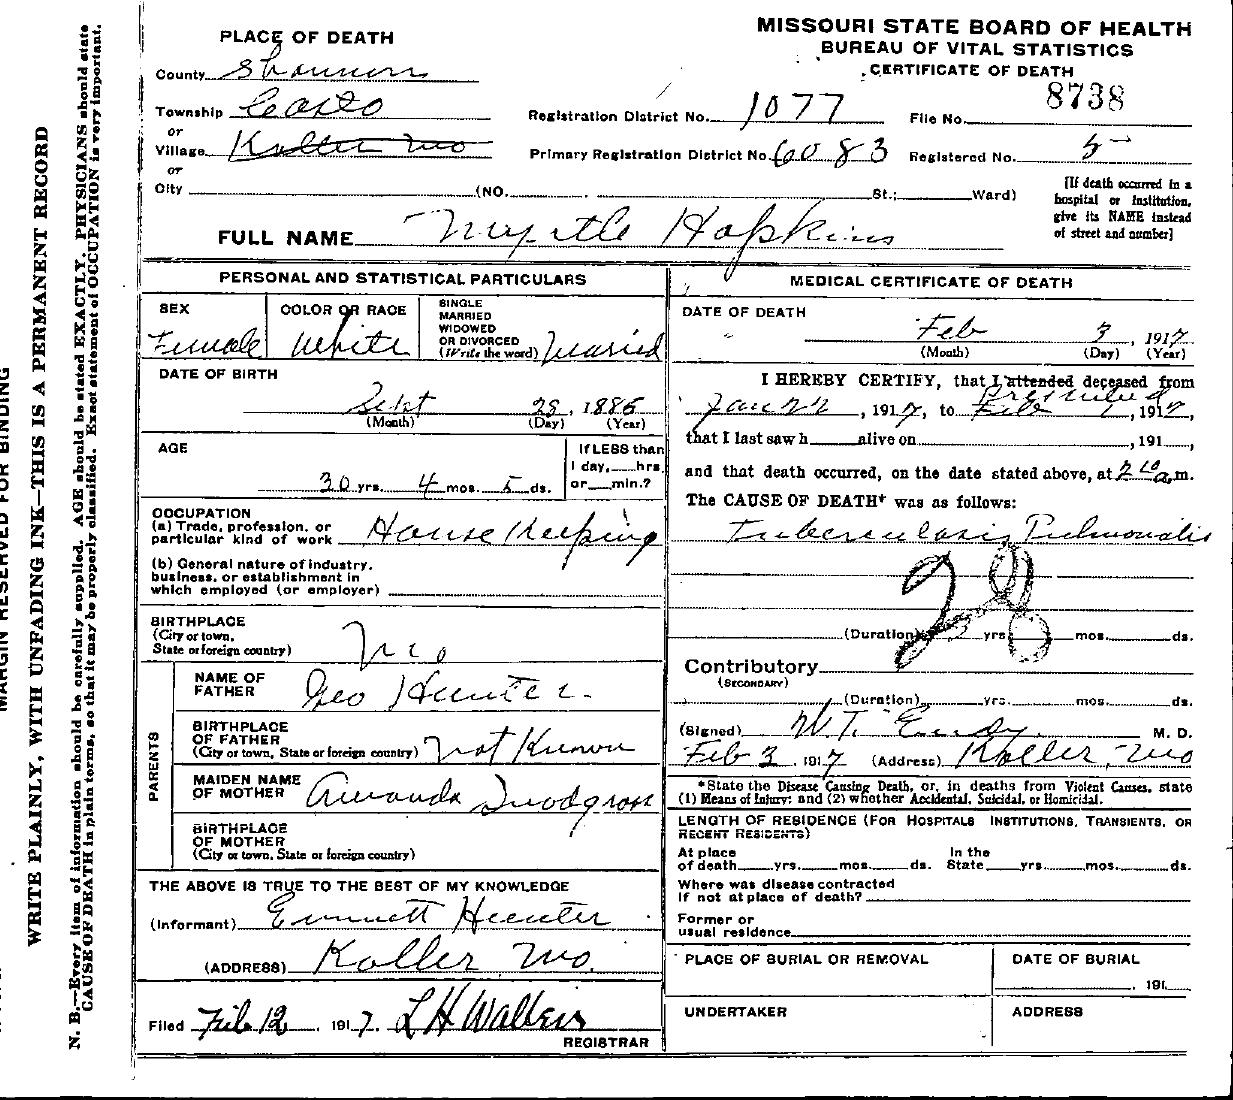 MISSOURI STATE BOARD OF HEALTH
BUREAU OF VITAL STATISTICS
CERTIFICATE OF DEATH
PLACE OF DEATH
County Shannon
Township
or
Village Koller Mo
or
City (NO. St.; Ward)
Registration District No. 1077
File No. 8738
Primary Registration District No. 6083
Registered No. 5
[If death occurred in a
hospital or institution,
give its NAME instead
of street and number]
FULL NAME Myrtle Hopkins
PERSONAL AND STATISTICAL PARTICULARS
SEX
Female
COLOR OR RACE
White
SINGLE
MARRIED
WIDOWED
OR DIVORCED
(Write the word) Maried
DATE OF BIRTH
Sept 28, 1886
(Month) (Day) (Year)
AGE
30 yrs. 4 mos. 5 ds.
If LESS than
1 day, hrs.
or min.?
OCCUPATION
(a) Trade, profession, or
particular kind of work House Keeping
(b) General nature of industry,
business, or establishment in
which employed (or employer)
BIRTHPLACE
(City or town,
State or foreign country) Mo
PARENTS
NAME OF
FATHER Geo Hunter
BIRTHPLACE
OF FATHER
(City or town, State or foreign country) Not Known
MAIDEN NAME
OF MOTHER Amanda Snodgrass
BIRTHPLACE
OF MOTHER
(City or town, State or foreign country)
THE ABOVE IS TRUE TO THE BEST OF MY KNOWLEDGE
(Informant) Emmett Hunter
(ADDRESS) Koller Mo.
Filed Feb 12, 1917. L H Walkers
REGISTRAR
MEDICAL CERTIFICATE OF DEATH
DATE OF DEATH
Feb 3, 1917
(Month) (Day) (Year)
I HEREBY CERTIFY, that I attended deceased from
prescribed
Jan 22, 1917, to Feb 1, 1917,
that I last saw h alive on , 191 ,
and that death occurred, on the date stated above, at 2 10 a.m.
The CAUSE OF DEATH* was as follows:
Tuberculosis Pulmonalis
28
(Duration) 2 yrs. mos. ds.
Contributory
(SECONDARY)
(Duration) yrs. mos. ds.
(Signed) W.T. Eudy, M. D.
Feb 3, 1917 (Address) Koller, Mo
*State the Disease Causing Death, or, in deaths from Violent Causes, state
(1) Means of Injury; and (2) whether Accidental, Suicidal, or Homicidal.
LENGTH OF RESIDENCE (FOR HOSPITALS INSTITUTIONS, TRANSIENTS, OR
RECENT RESIDENTS)
At place In the
of death yrs. mos. ds. State yrs. mos. ds.
Where was disease contracted
if not at place of death?
Former or
usual residence
PLACE OF BURIAL OR REMOVAL
DATE OF BURIAL
, 191
UNDERTAKER
ADDRESS
MARGIN RESERVED FOR BINDING
WRITE PLAINLY, WITH UNFADING INK—THIS IS A PERMANENT RECORD
N. B.—Every item of information should be carefully supplied. AGE should be stated EXACTLY. PHYSICIANS should state
CAUSE OF DEATH in plain terms, so that it may be properly classified. Exact statement of OCCUPATION is very important.